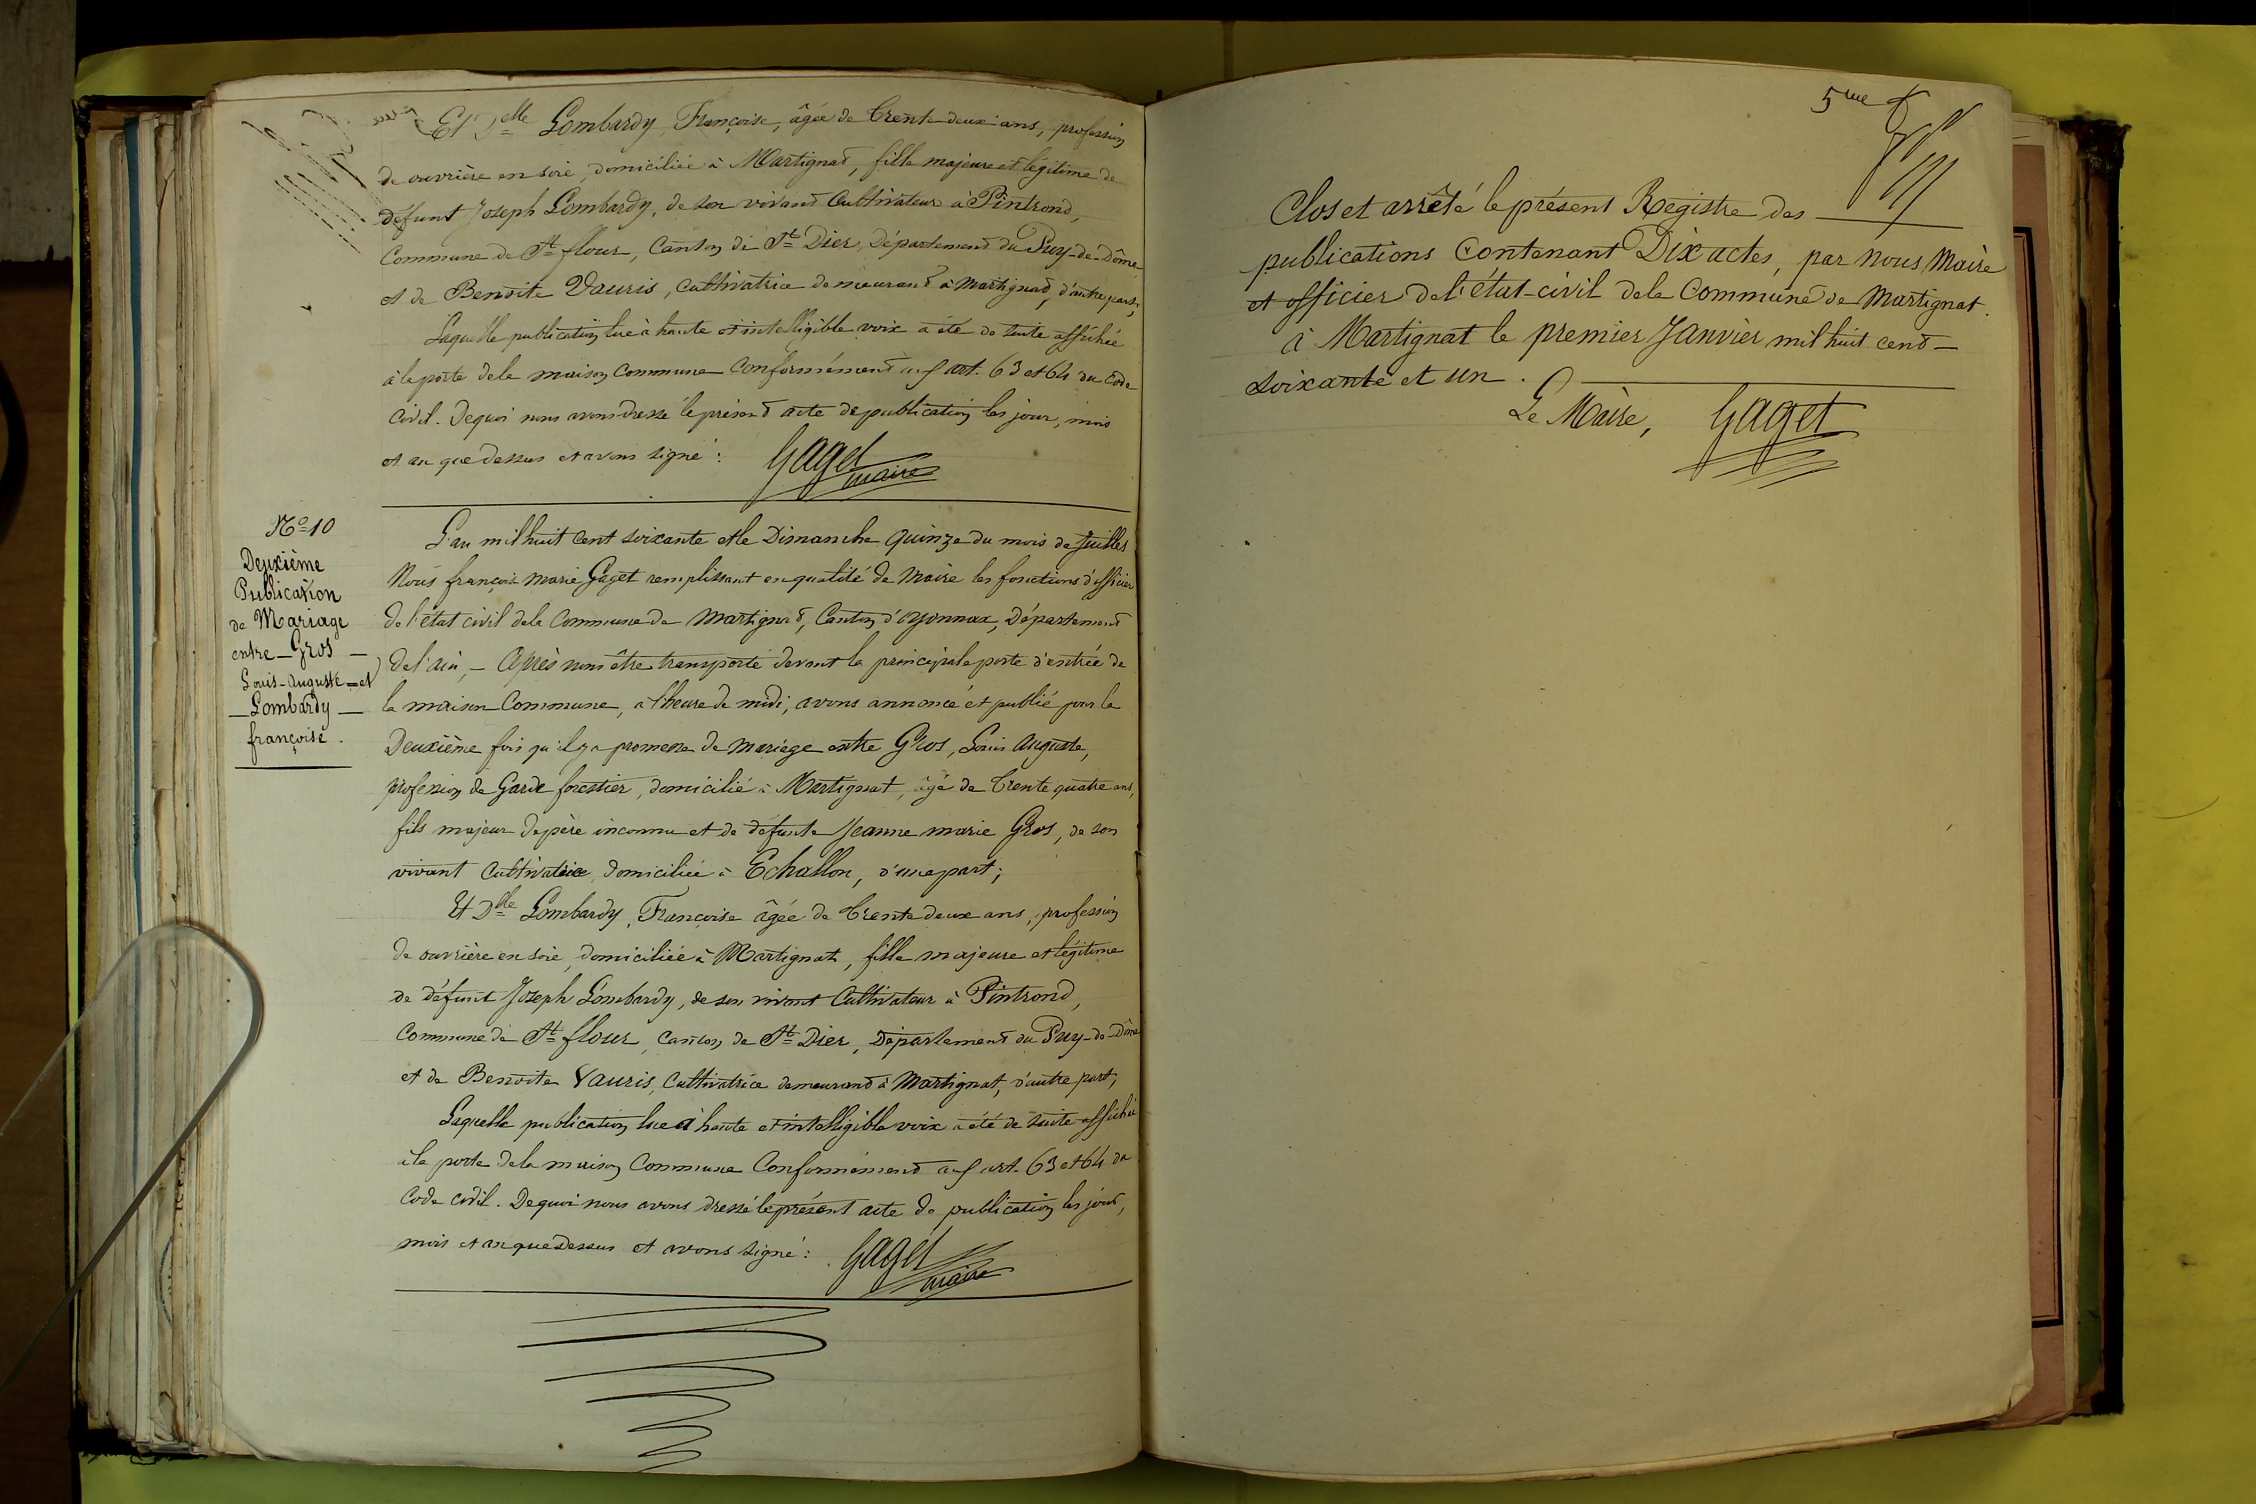 Et Delle Lombardy, Françoise, âgée de trente deux ans, profession
de ouvrière en soie, domiciliée à Martignat, fille majeure et légitime de
défunt Joseph Lombardy, de son vivant Cultivateur à Pintrond,
Commune de St flour, Canton de St Dier, Département du Puy-de-Dôme
et de Benoite Vauris, Cultivatrice demeurant à Martignat, d'autre part;
Laquelle publication lue à haute et intelligible voix a été de suite affichée
à la porte de la maison Commune Conformément aux art. 63 et 64 du Code
Civil. De quoi nous avons dressé le présent acte de publication les jour, mois
et an que dessus et avons signé :
Gaget
maire
No 10
Deuxième
Publication
de Mariage
entre - Gros -
Louis-Auguste - et
- Lombardy -
françoise.
L'an mil huit cent soixante et le Dimanche quinze du mois de Juillet
Nous françois marie Gaget remplissant en qualité de Maire les fonctions d'officier
de l'état civil de la Commune de Martignat, Canton d'Oyonnax, Département
de l'ain, - Après nous être transporté devant la principale porte d'entrée de
la maison Commune, à l'heure de midi, avons annoncé et publié pour la
Deuxième fois qu'il y a promesse de mariage entre Gros, Louis Auguste,
profession de Garde forestier, domicilié à Martignat, âgé de trente quatre ans,
fils majeur de père inconnu et de défunte Jeanne marie Gros, de son
vivant Cultivatrice, domiciliée à Echallon, d'une part;
Et Dlle Lombardy, Françoise âgée de trente deux ans, profession
de ouvrière en soie, domiciliée à Martignat, fille majeure et légitime
de défunt Joseph Lombardy, de son vivant Cultivateur à Pintrond,
Commune de St flour, canton de St Dier, Département du Puy-de-Dôme
et de Benoite Vauris, Cultivatrice demeurant à Martignat, d'autre part;
Laquelle publication lue à haute et intelligible voix a été de suite affichée
à la porte de la maison Commune Conformément aux art. 63 et 64 du
Code civil. De quoi nous avons dressé le présent acte de publication les jour,
mois et an que dessus et avons signé :
Gaget
maire
5me f
Clos et arrêté le présent Registre des
publications Contenant Dix actes, par nous Maire
et officier de l'état-civil de la Commune de Martignat.
à Martignat le premier Janvier mil huit cent -
soixante et un.
Le Maire, Gaget